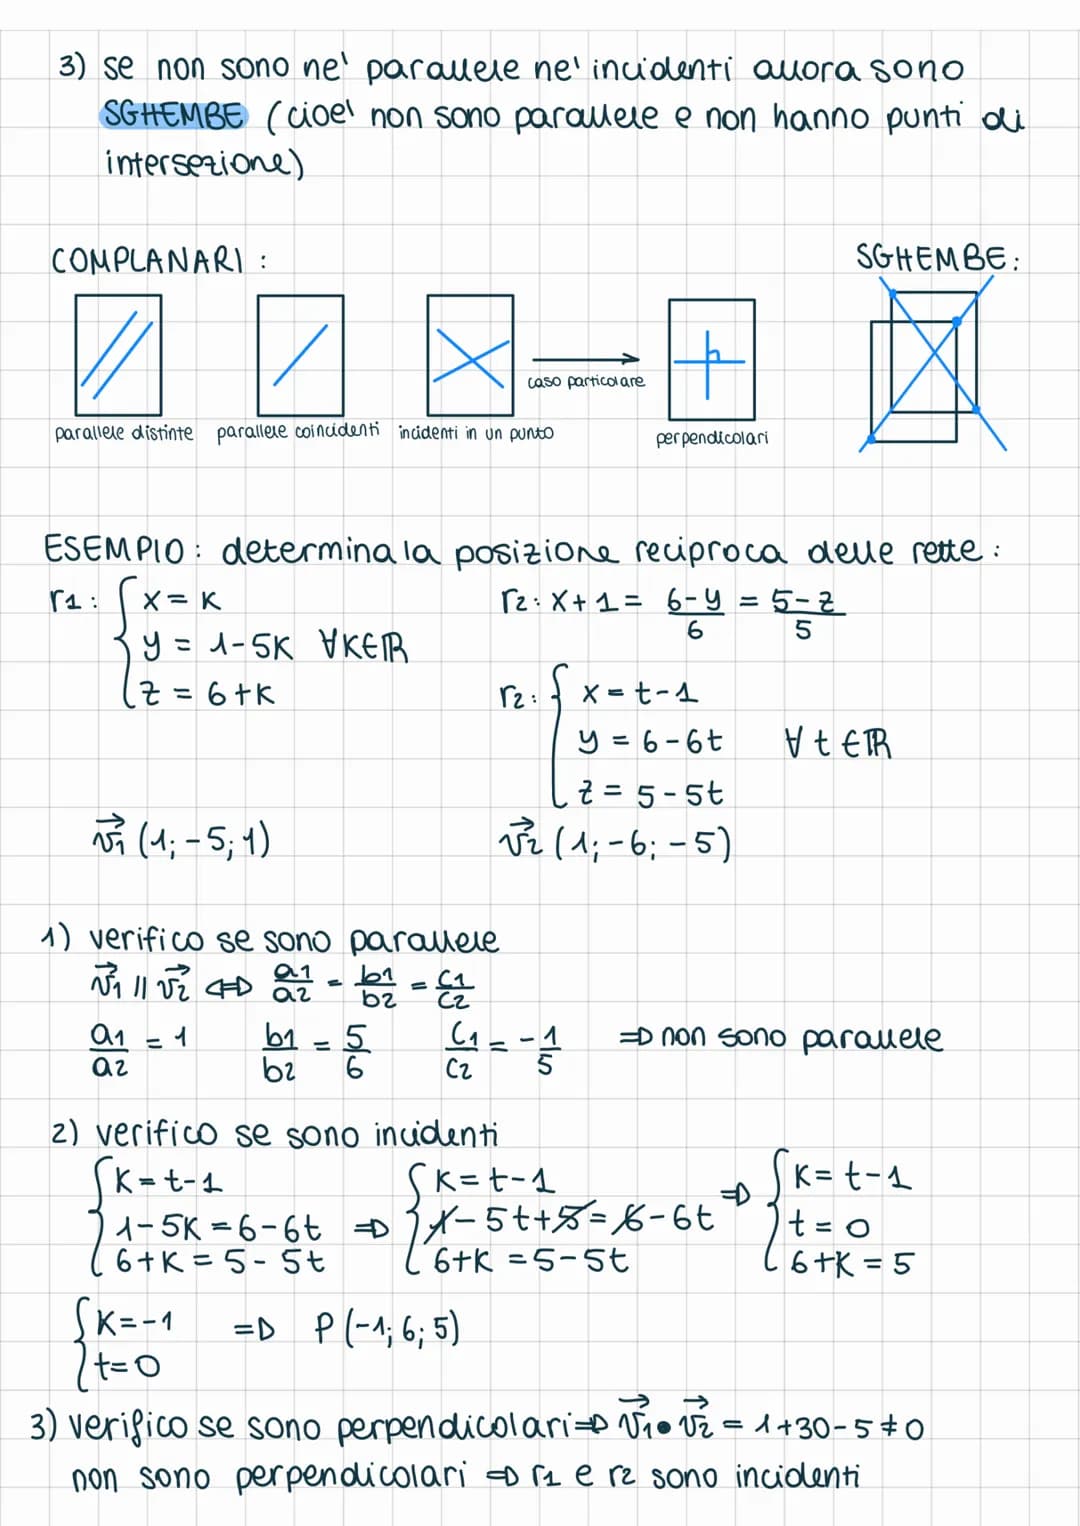 3) se non sono ne' parallele ne' incidenti allora sono
SGHEMBE (cioe' non sono parallele e non hanno punti di
intersezione)
COMPLANARI :
SGHEMBE:
caso particolare
parallele distinte
parallele coincidenti
incidenti in un punto
perpendicolari
ESEMPIO: determina la posizione reciproca delle rette:
r1: { x = K
y = 1-5K ∀K∈ℝ
z = 6+K
r2: x+1 = (6-y)/6 = (5-z)/5
r2: { x = t-1
y = 6-6t ∀ t ∈ℝ
z = 5-5t
v1 (1; -5; 1)
v2 (1; -6; -5)
1) verifico se sono parallele
v1 // v2 ⇔ a1/a2 = b1/b2 = c1/c2
a1/a2 = 1 b1/b2 = 5/6 c1/c2 = -1/5 ⇒ non sono parallele
2) verifico se sono incidenti
{ K = t-1 { K = t-1 ⇒ { K = t-1
1-5K = 6-6t ⇒ 1-5t+5 = 6-6t t = 0
6+K = 5-5t 6+K = 5-5t 6+K = 5
{ K = -1 ⇒ P (-1; 6; 5)
t = 0
3) verifico se sono perpendicolari ⇒ v1 • v2 = 1+30-5 ≠ 0
non sono perpendicolari ⇒ r1 e r2 sono incidenti